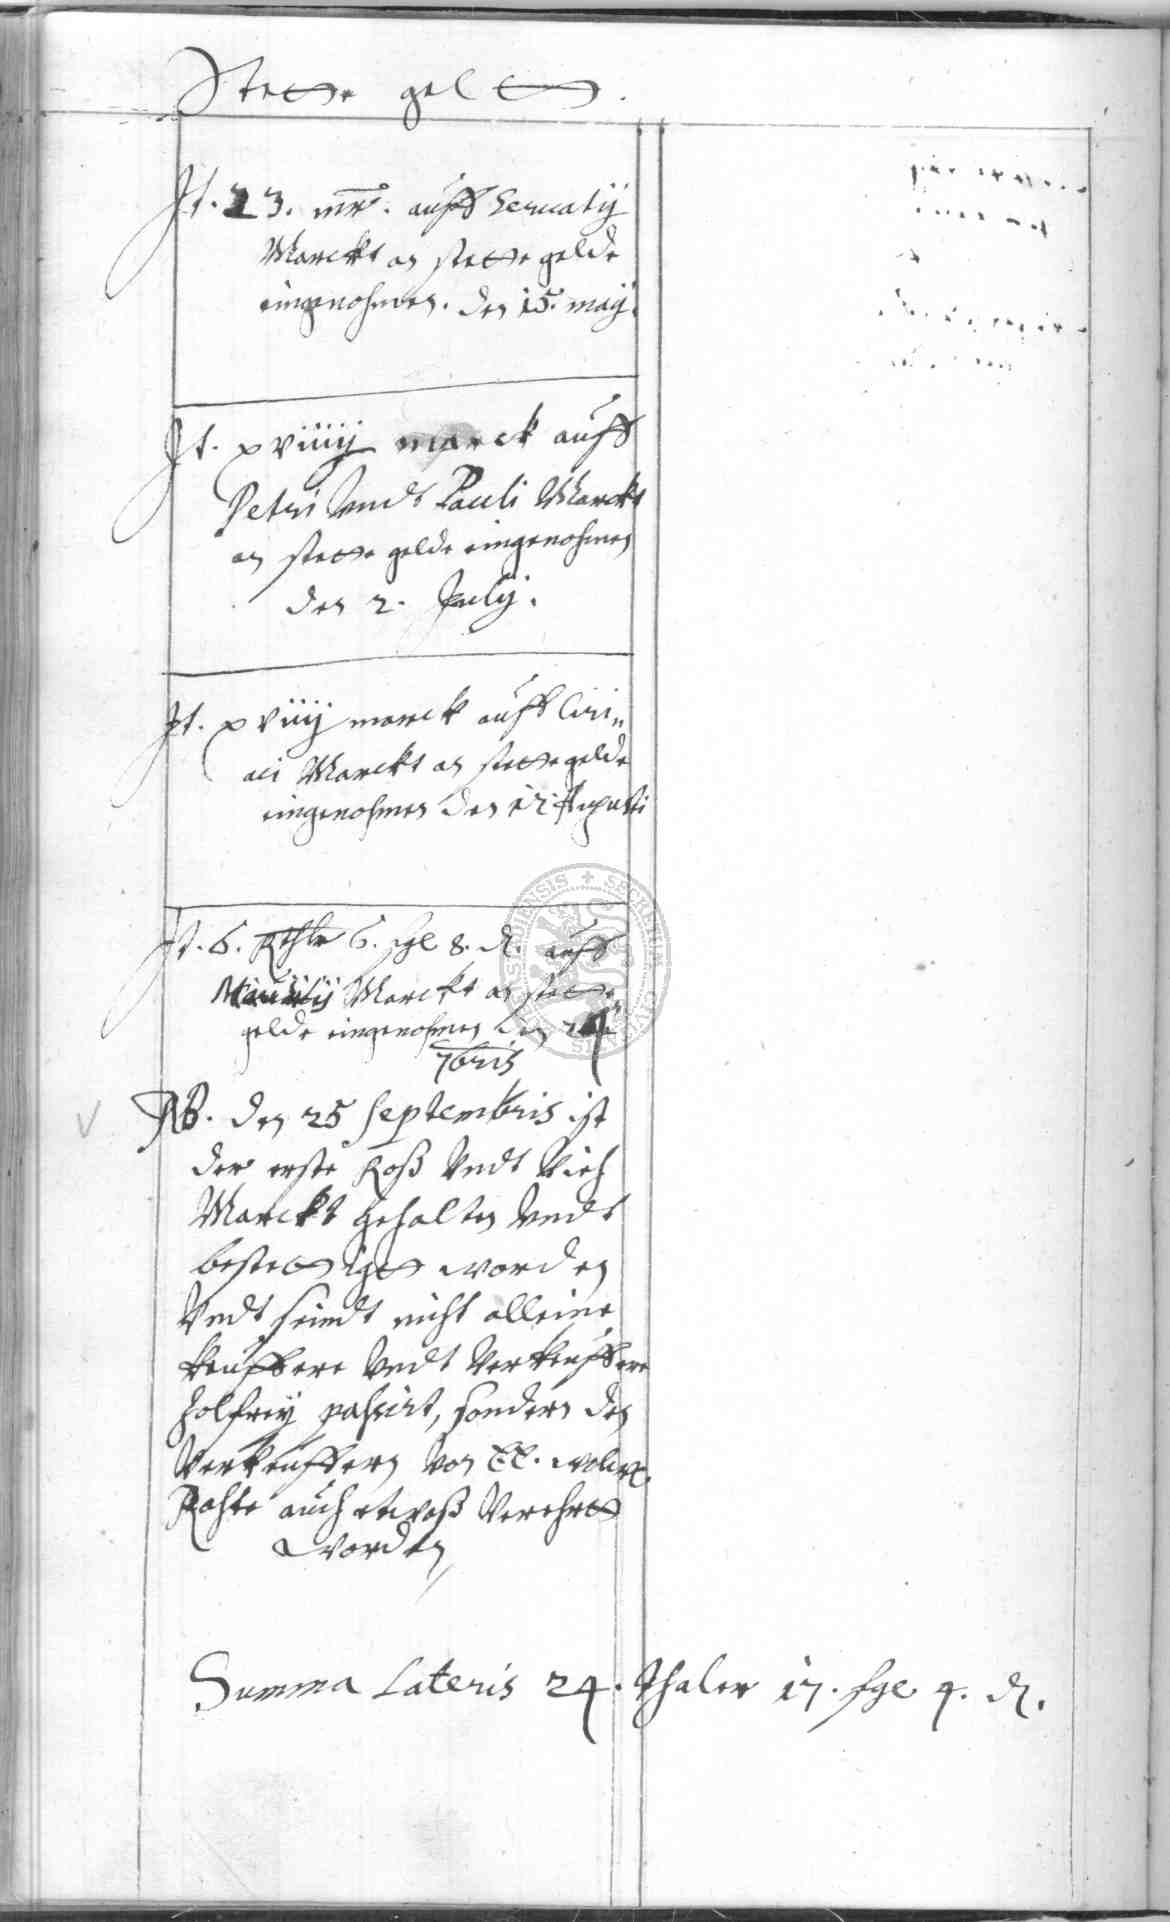 Stette geltt.
It. 23. mr. auff Seruatij
Marckt an stette gelde
eingenohmen. den 15. maij.
It. xviiij marck auff
Petri vndt Pauli Marckt
an stette gelde eingenohmen
den 2. Julij.
It. xviiij marck auff Ciri„
aci Marckt an stette gelde
eingenohmen den 12 Augusti
It. 6. Rthlr 6. sgl 8. d. auff
Mauritij Marckt an stette
gelde eingenohmen den
7bris
NB. den 25 Septembris ist
der erste Roß vndt Vieh
Marckt gehalten vndt
bestettigtt worden
vndt seindt nicht alleine
keuffere vndt verkeuffere
Zolfrey passirt, sondern den
verkeuffern von EE. wolw.
Rahte auch etwaß verehrtt
worden
Summa Lateris 24. thaler 17. sgl 4. d.